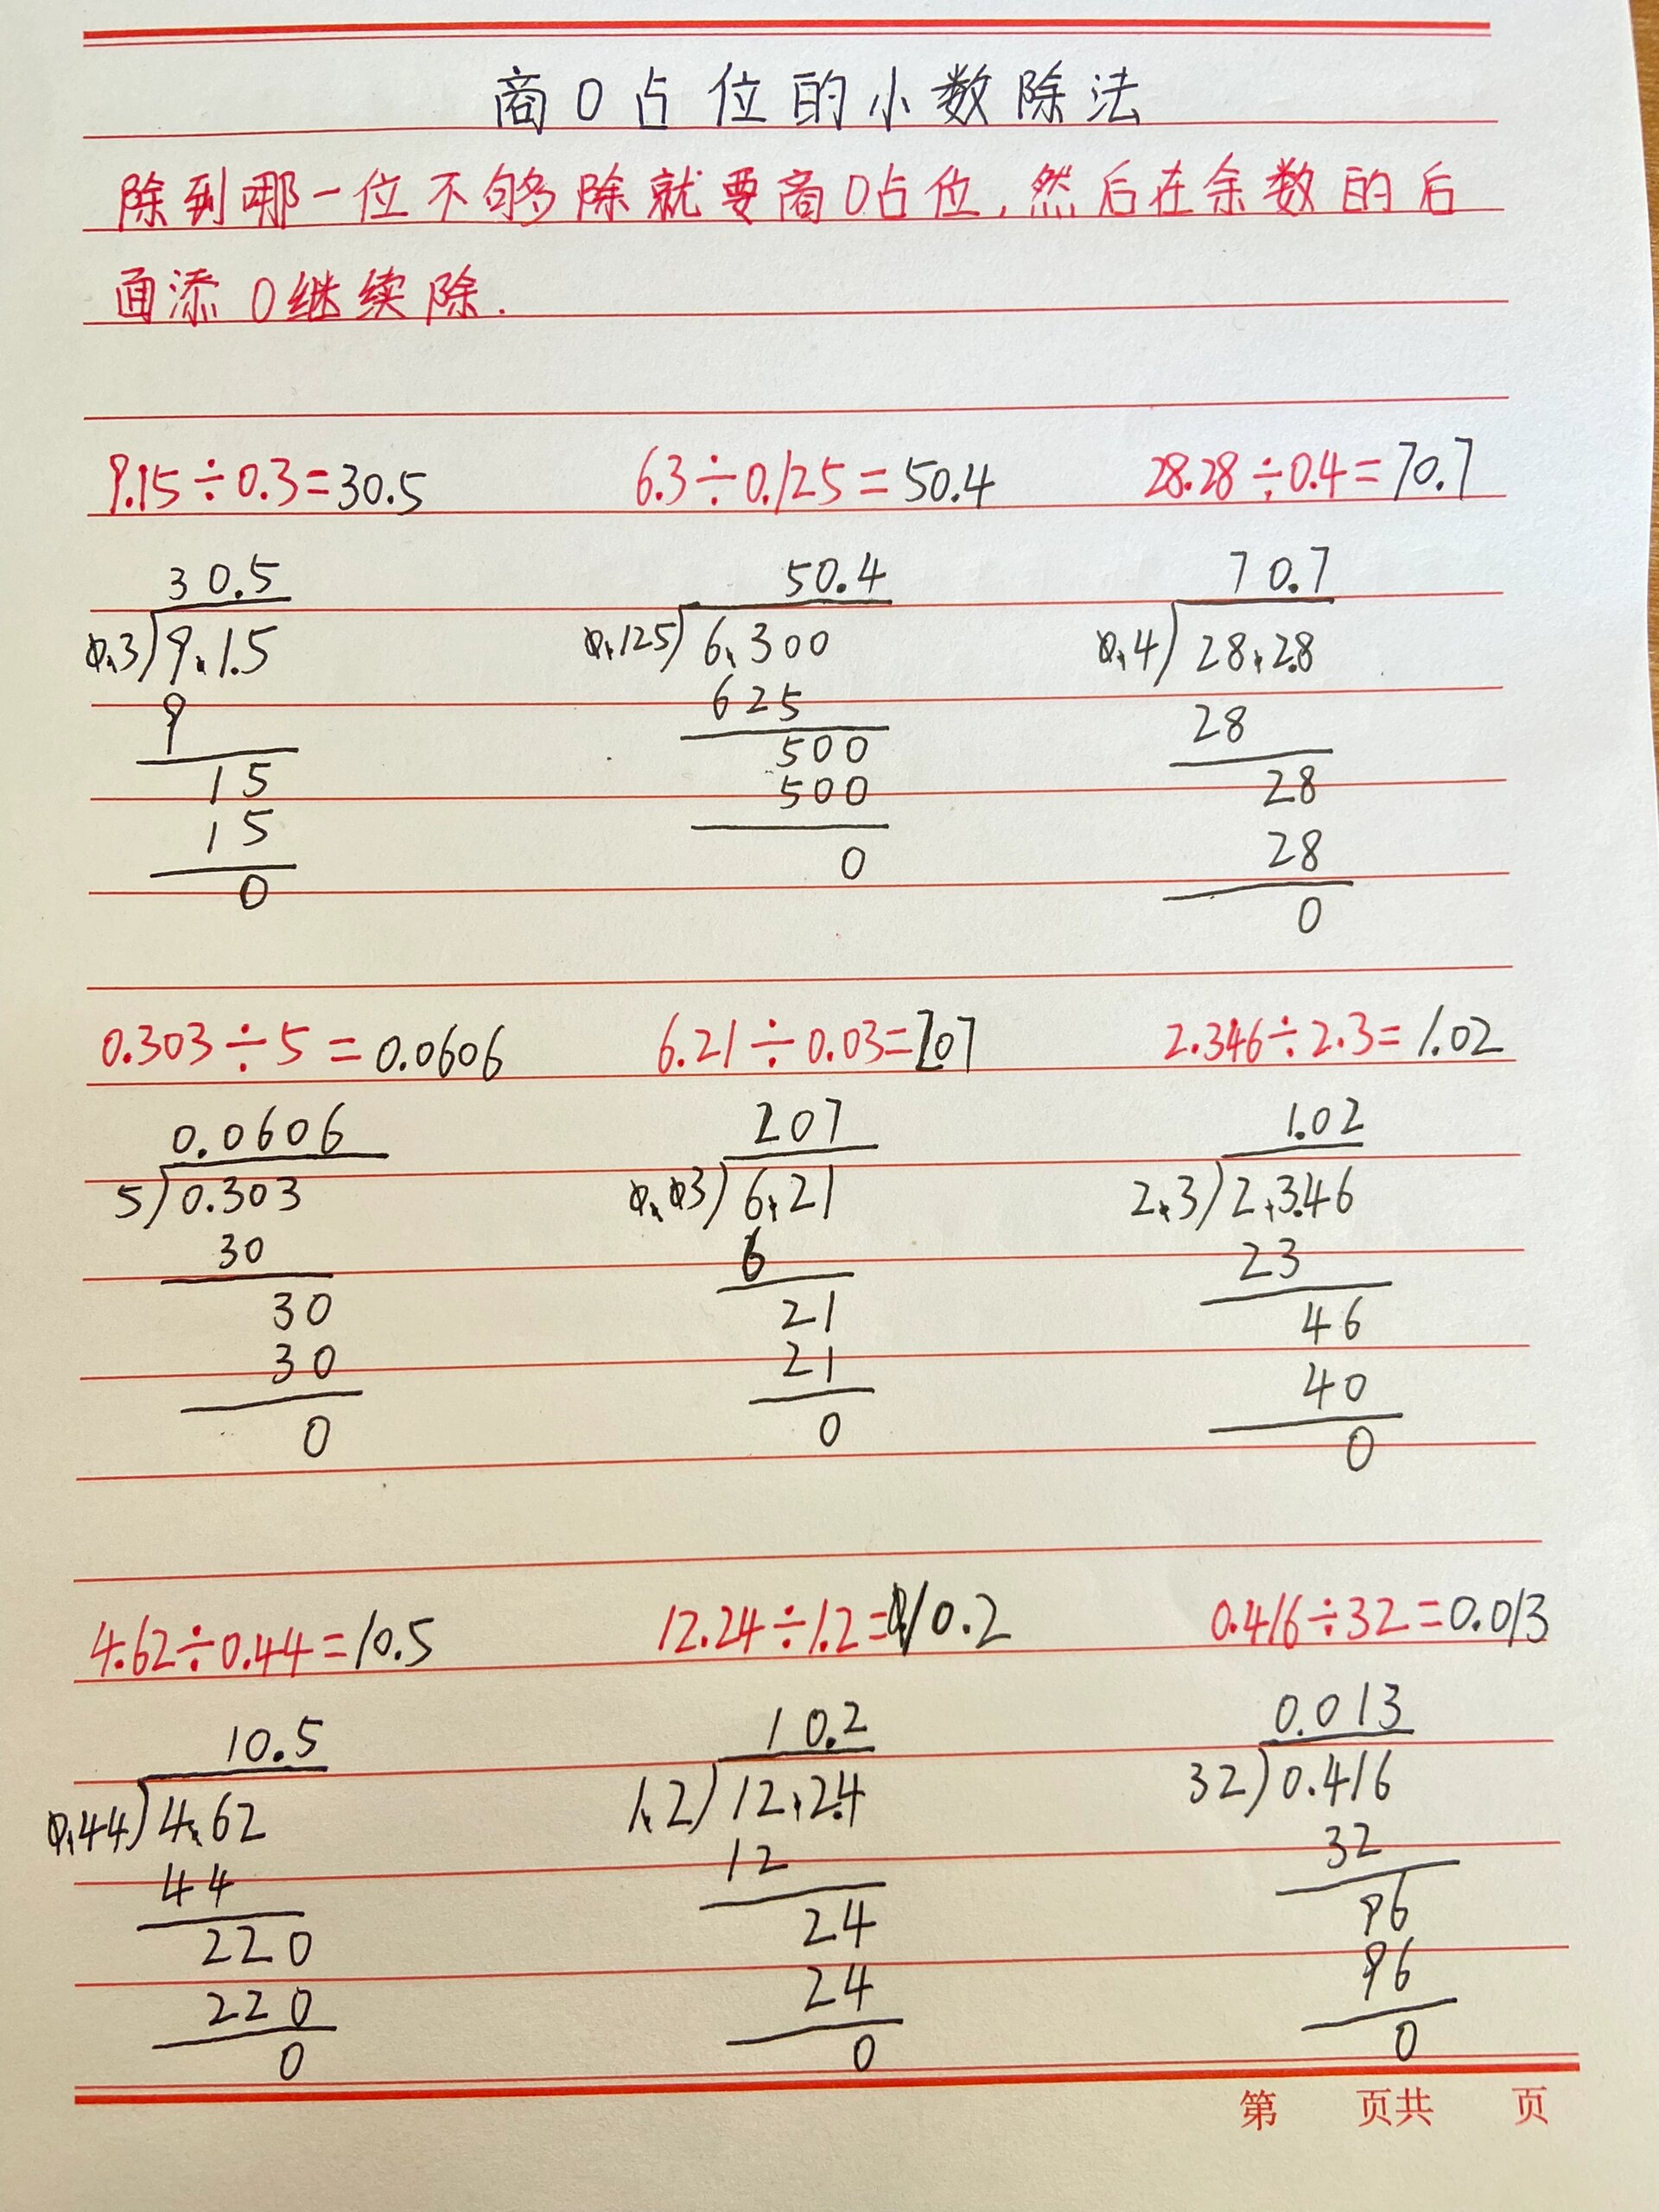 商0占位的小数除法
除到哪一位不够除就要商0占位,然后在余数的后
面添0继续除.
9.15÷0.3=30.5
30.5
0.3)9.1.5
9
15
15
0
6.3÷0.125=50.4
50.4
0.125)6.300
625
500
500
0
28.28÷0.4=70.7
70.7
0.4)28.2.8
28
28
28
0
0.303÷5=0.0606
0.0606
5)0.303
30
30
30
0
6.21÷0.03=207
207
0.03)6.21
6
21
21
0
2.346÷2.3=1.02
1.02
2.3)2.3.46
23
46
40
0
4.62÷0.44=10.5
10.5
0.44)4.62
44
220
220
0
12.24÷1.2=10.2
10.2
1.2)12.2.4
12
24
24
0
0.416÷32=0.013
0.013
32)0.416
32
96
96
0
第 页共 页